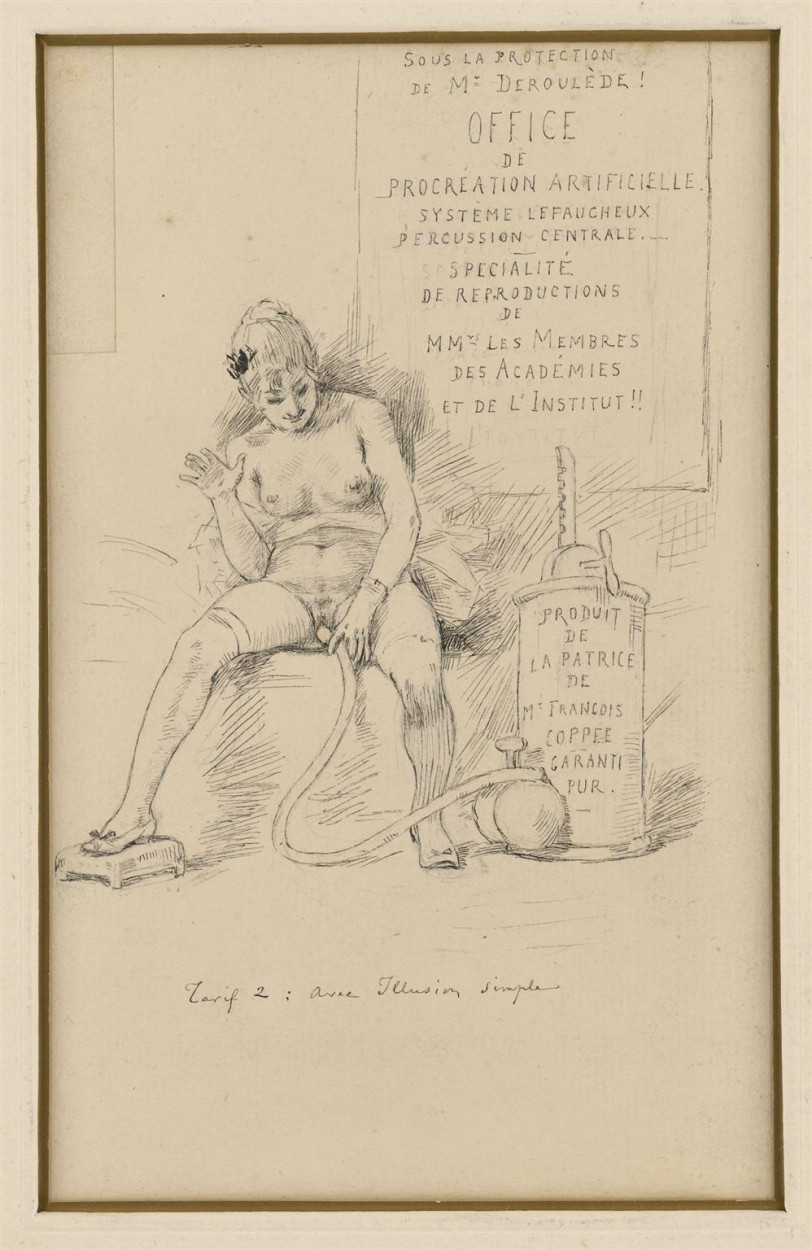 SOUS LA PROTECTION
DE Mr DEROULÈDE !
OFFICE
DE
PROCRÉATION ARTIFICIELLE.
SYSTÈME LEFAUCHEUX
PERCUSSION CENTRALE.
SPECIALITÉ
DE REPRODUCTIONS
DE
MMrs LES MEMBRES
DES ACADÉMIES
ET DE L'INSTITUT !!
PRODUIT
DE
LA PATRICE
DE
Mr FRANCOIS
COPPEE
GARANTI
PUR.
Tarif 2 : avec Illusion simple